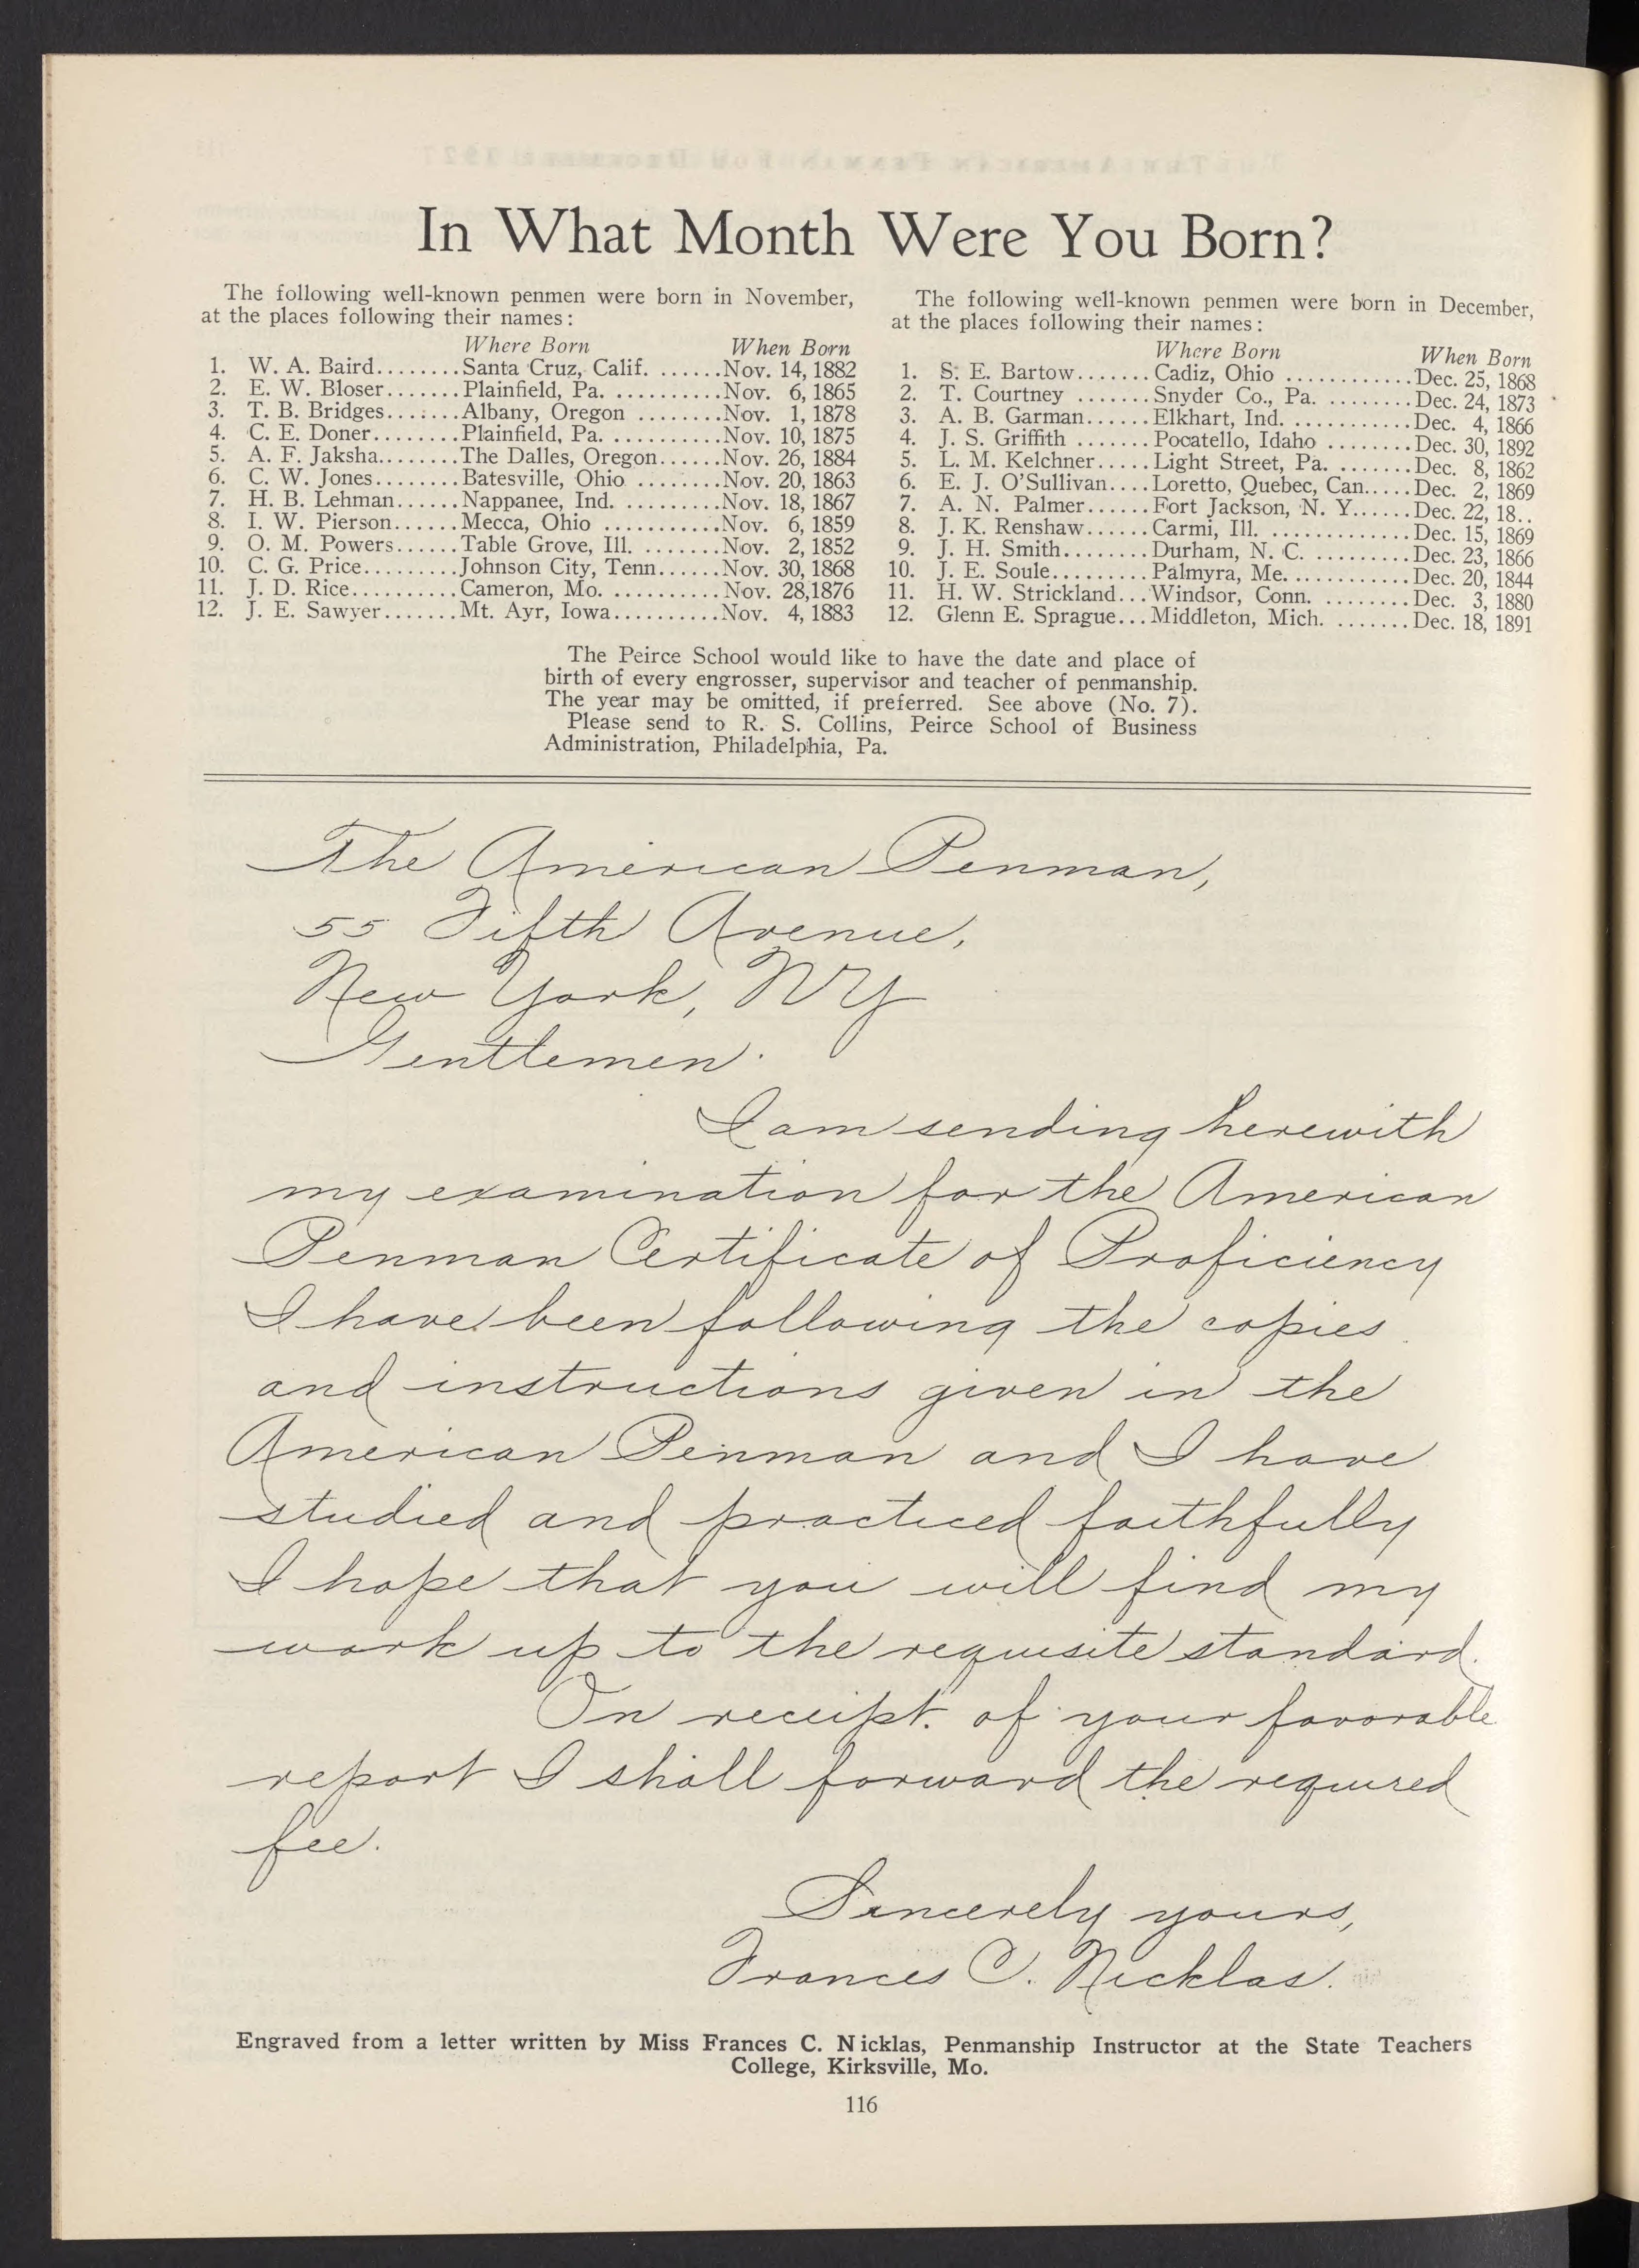 In What Month Were You Born?
The following well-known penmen were born in November,
at the places following their names:
Where Born When Born
1. W. A. Baird........Santa Cruz, Calif. .......Nov. 14, 1882
2. E. W. Bloser.......Plainfield, Pa. ...........Nov. 6, 1865
3. T. B. Bridges.......Albany, Oregon ........Nov. 1, 1878
4. C. E. Doner........Plainfield, Pa. ...........Nov. 10, 1875
5. A. F. Jaksha........The Dalles, Oregon......Nov. 26, 1884
6. C. W. Jones........Batesville, Ohio ........Nov. 20, 1863
7. H. B. Lehman......Nappanee, Ind. ..........Nov. 18, 1867
8. I. W. Pierson......Mecca, Ohio ............Nov. 6, 1859
9. O. M. Powers......Table Grove, Ill. ........Nov. 2, 1852
10. C. G. Price.........Johnson City, Tenn......Nov. 30, 1868
11. J. D. Rice..........Cameron, Mo. ...........Nov. 28,1876
12. J. E. Sawyer.......Mt. Ayr, Iowa...........Nov. 4, 1883
The following well-known penmen were born in December,
at the places following their names:
Where Born When Born
1. S. E. Bartow.......Cadiz, Ohio ............Dec. 25, 1868
2. T. Courtney .......Snyder Co., Pa. ........Dec. 24, 1873
3. A. B. Garman......Elkhart, Ind. ...........Dec. 4, 1866
4. J. S. Griffith .......Pocatello, Idaho ........Dec. 30, 1892
5. L. M. Kelchner.....Light Street, Pa. .......Dec. 8, 1862
6. E. J. O'Sullivan....Loretto, Quebec, Can.....Dec. 2, 1869
7. A. N. Palmer......Fort Jackson, N. Y......Dec. 22, 18..
8. J. K. Renshaw......Carmi, Ill. ..............Dec. 15, 1869
9. J. H. Smith........Durham, N. C. .........Dec. 23, 1866
10. J. E. Soule.........Palmyra, Me. ...........Dec. 20, 1844
11. H. W. Strickland...Windsor, Conn. ........Dec. 3, 1880
12. Glenn E. Sprague...Middleton, Mich. .......Dec. 18, 1891
The Peirce School would like to have the date and place of
birth of every engrosser, supervisor and teacher of penmanship.
The year may be omitted, if preferred. See above (No. 7).
Please send to R. S. Collins, Peirce School of Business
Administration, Philadelphia, Pa.
The American Penman,
55 Fifth Avenue,
New York, NY
Gentlemen.
I am sending herewith
my examination for the American
Penman Certificate of Proficiency
I have been following the copies
and instructions given in the
American Penman and I have
studied and practiced faithfully
I hope that you will find my
work up to the requisite standard.
On receipt of your favorable
report I shall forward the required
fee.
Sincerely yours,
Frances C. Nicklas.
Engraved from a letter written by Miss Frances C. Nicklas, Penmanship Instructor at the State Teachers
College, Kirksville, Mo.
116